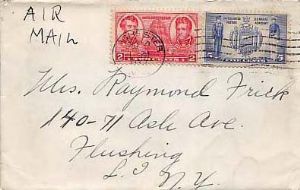 AIR
MAIL
Mrs. Raymond Frick
140-71 Ash Ave.
Flushing
L I N.Y.